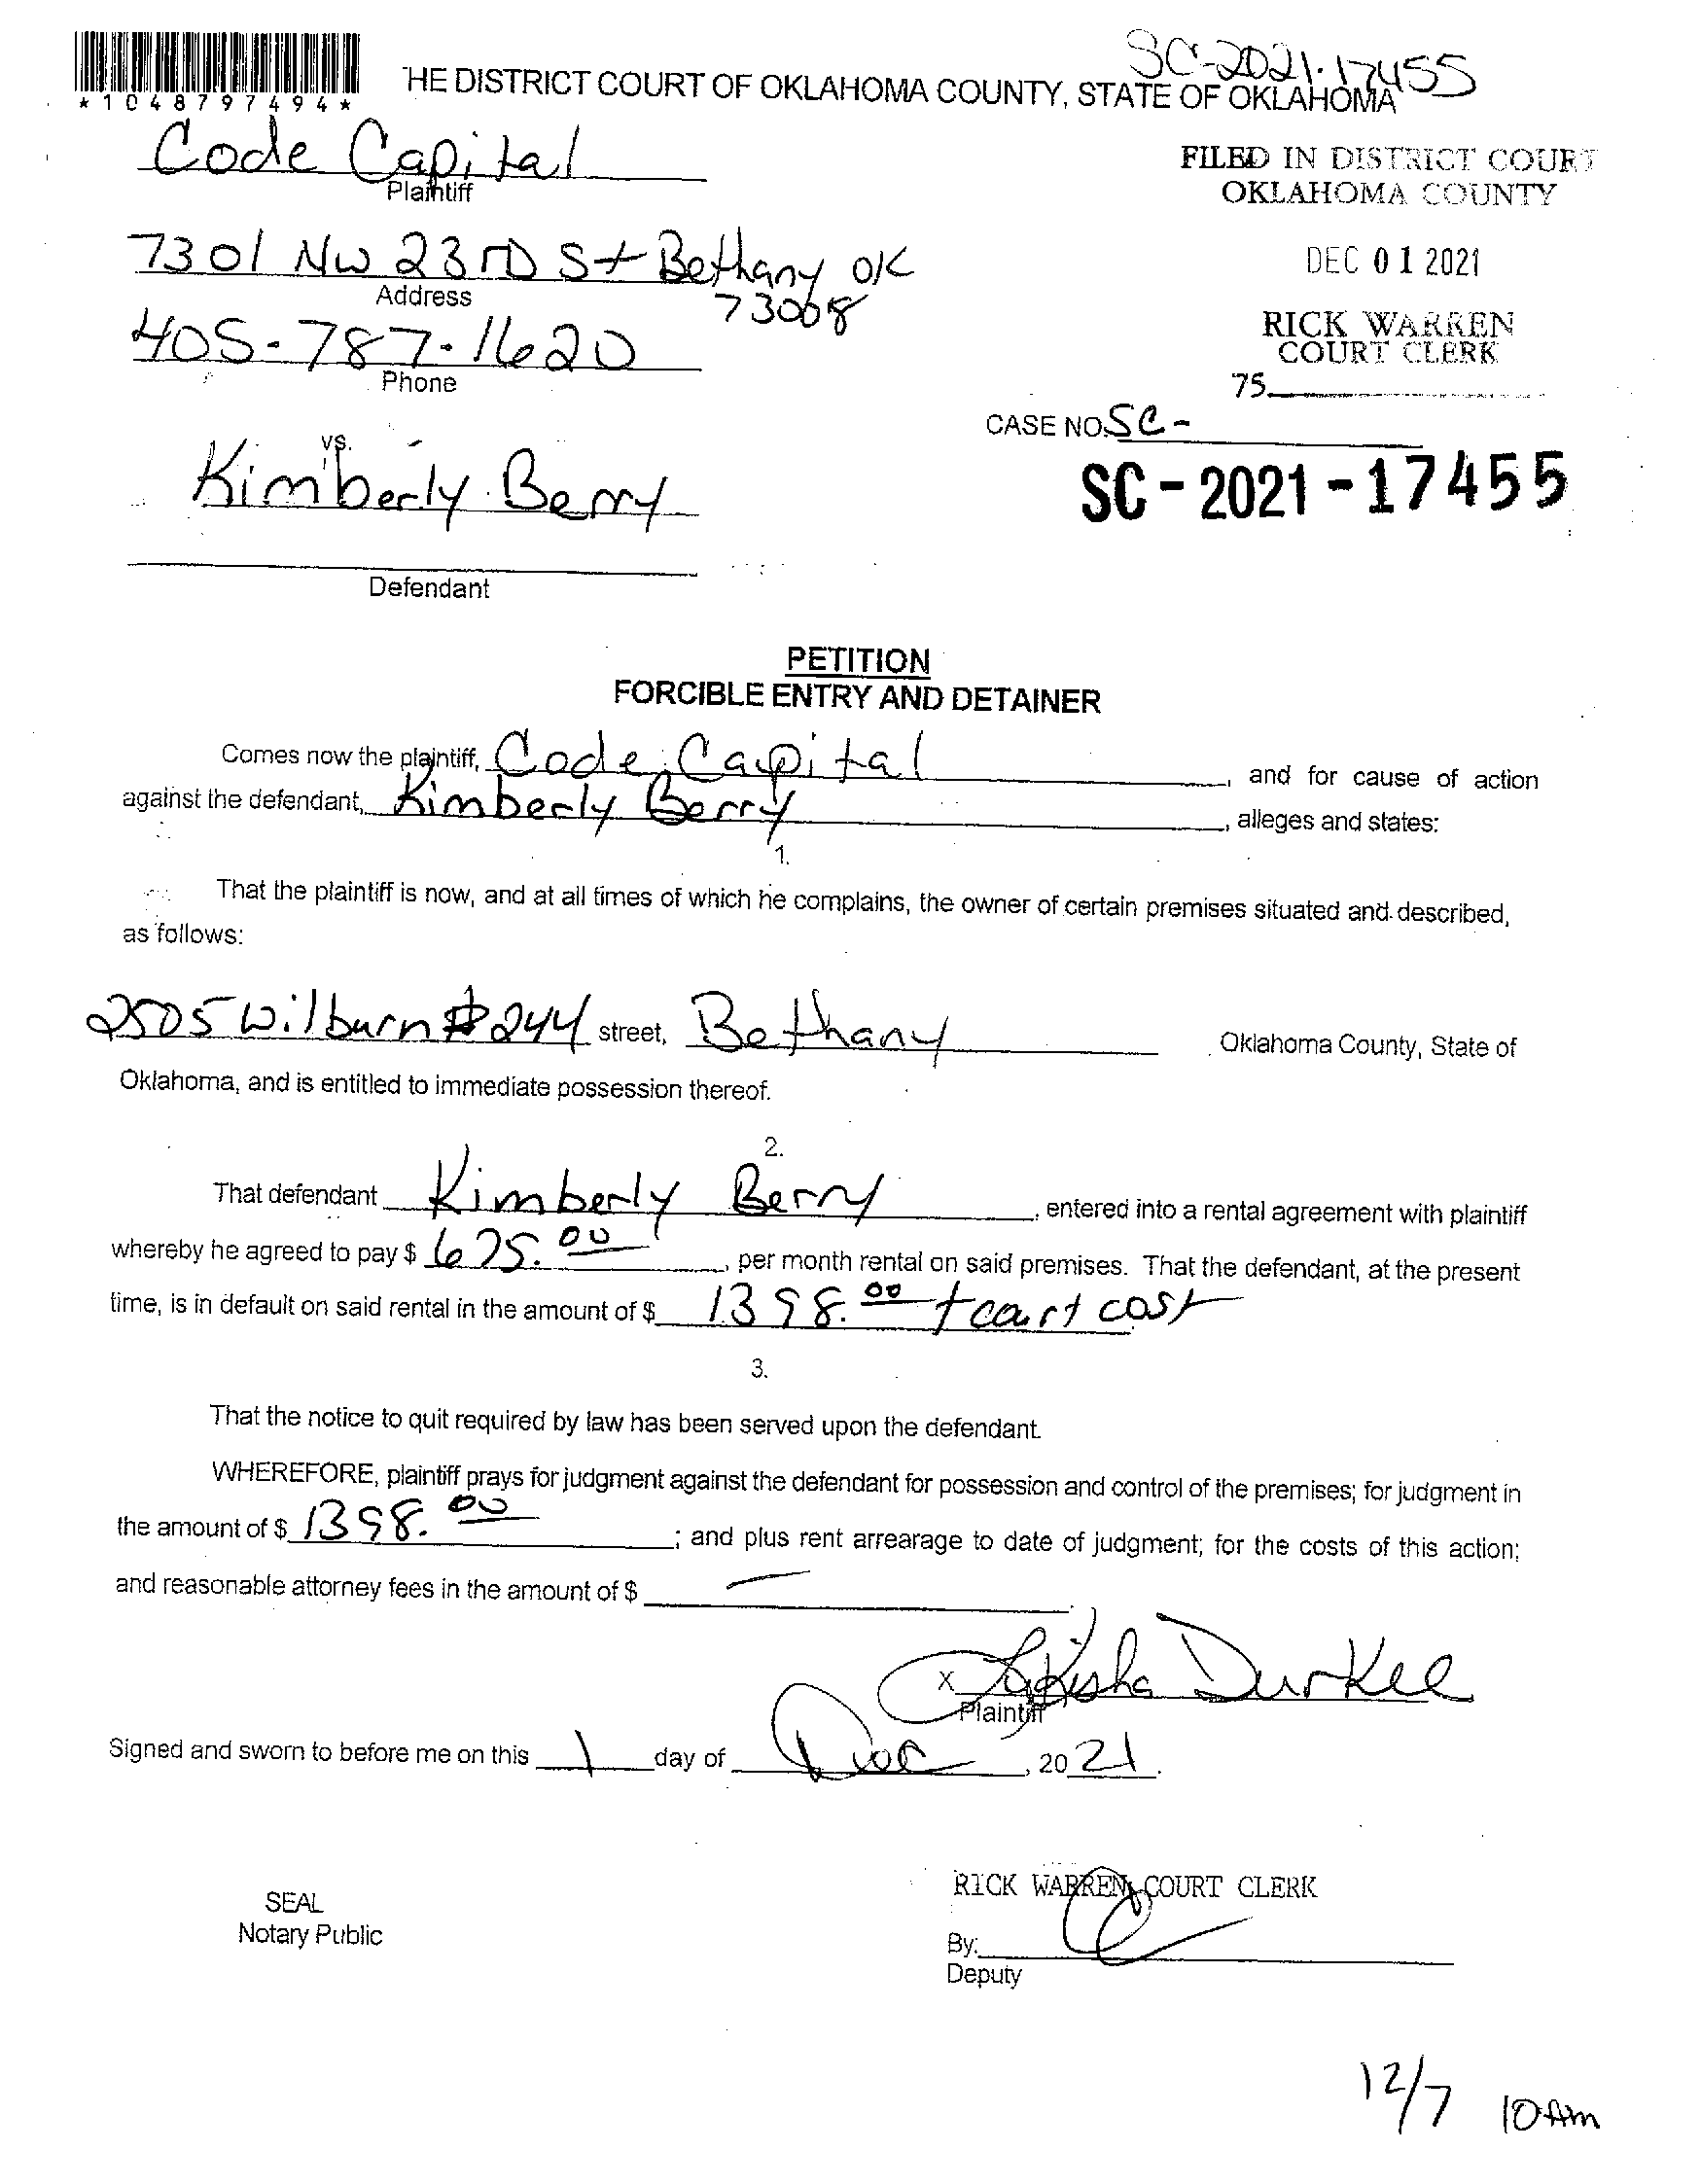 SC-2021-17455
*1048797494*
THE DISTRICT COURT OF OKLAHOMA COUNTY, STATE OF OKLAHOMA
Code Capital
Plaintiff
FILED IN DISTRICT COURT
OKLAHOMA COUNTY
7301 NW 23RD St Bethany OK
73008
Address
DEC 01 2021
405-787-1620
Phone
RICK WARREN
COURT CLERK
75
CASE NO. SC-
SC-2021-17455
vs.
Kimberly Berry
Defendant
PETITION
FORCIBLE ENTRY AND DETAINER
Comes now the plaintiff, Code Capital, and for cause of action
against the defendant, Kimberly Berry, alleges and states:
1.
That the plaintiff is now, and at all times of which he complains, the owner of certain premises situated and described,
as follows:
2505 Wilburn #244 street, Bethany Oklahoma County, State of
Oklahoma, and is entitled to immediate possession thereof.
2.
That defendant Kimberly Berry, entered into a rental agreement with plaintiff
whereby he agreed to pay $ 675.00, per month rental on said premises. That the defendant, at the present
time, is in default on said rental in the amount of $ 1398.00 + court cost
3.
That the notice to quit required by law has been served upon the defendant.
WHEREFORE, plaintiff prays for judgment against the defendant for possession and control of the premises; for judgment in
the amount of $ 1398.00; and plus rent arrearage to date of judgment; for the costs of this action;
and reasonable attorney fees in the amount of $ —
x Lakisha Durkee
Plaintiff
Signed and sworn to before me on this 1 day of Dec, 2021.
SEAL
Notary Public
RICK WARREN, COURT CLERK
By:
Deputy
12/7 10 Am